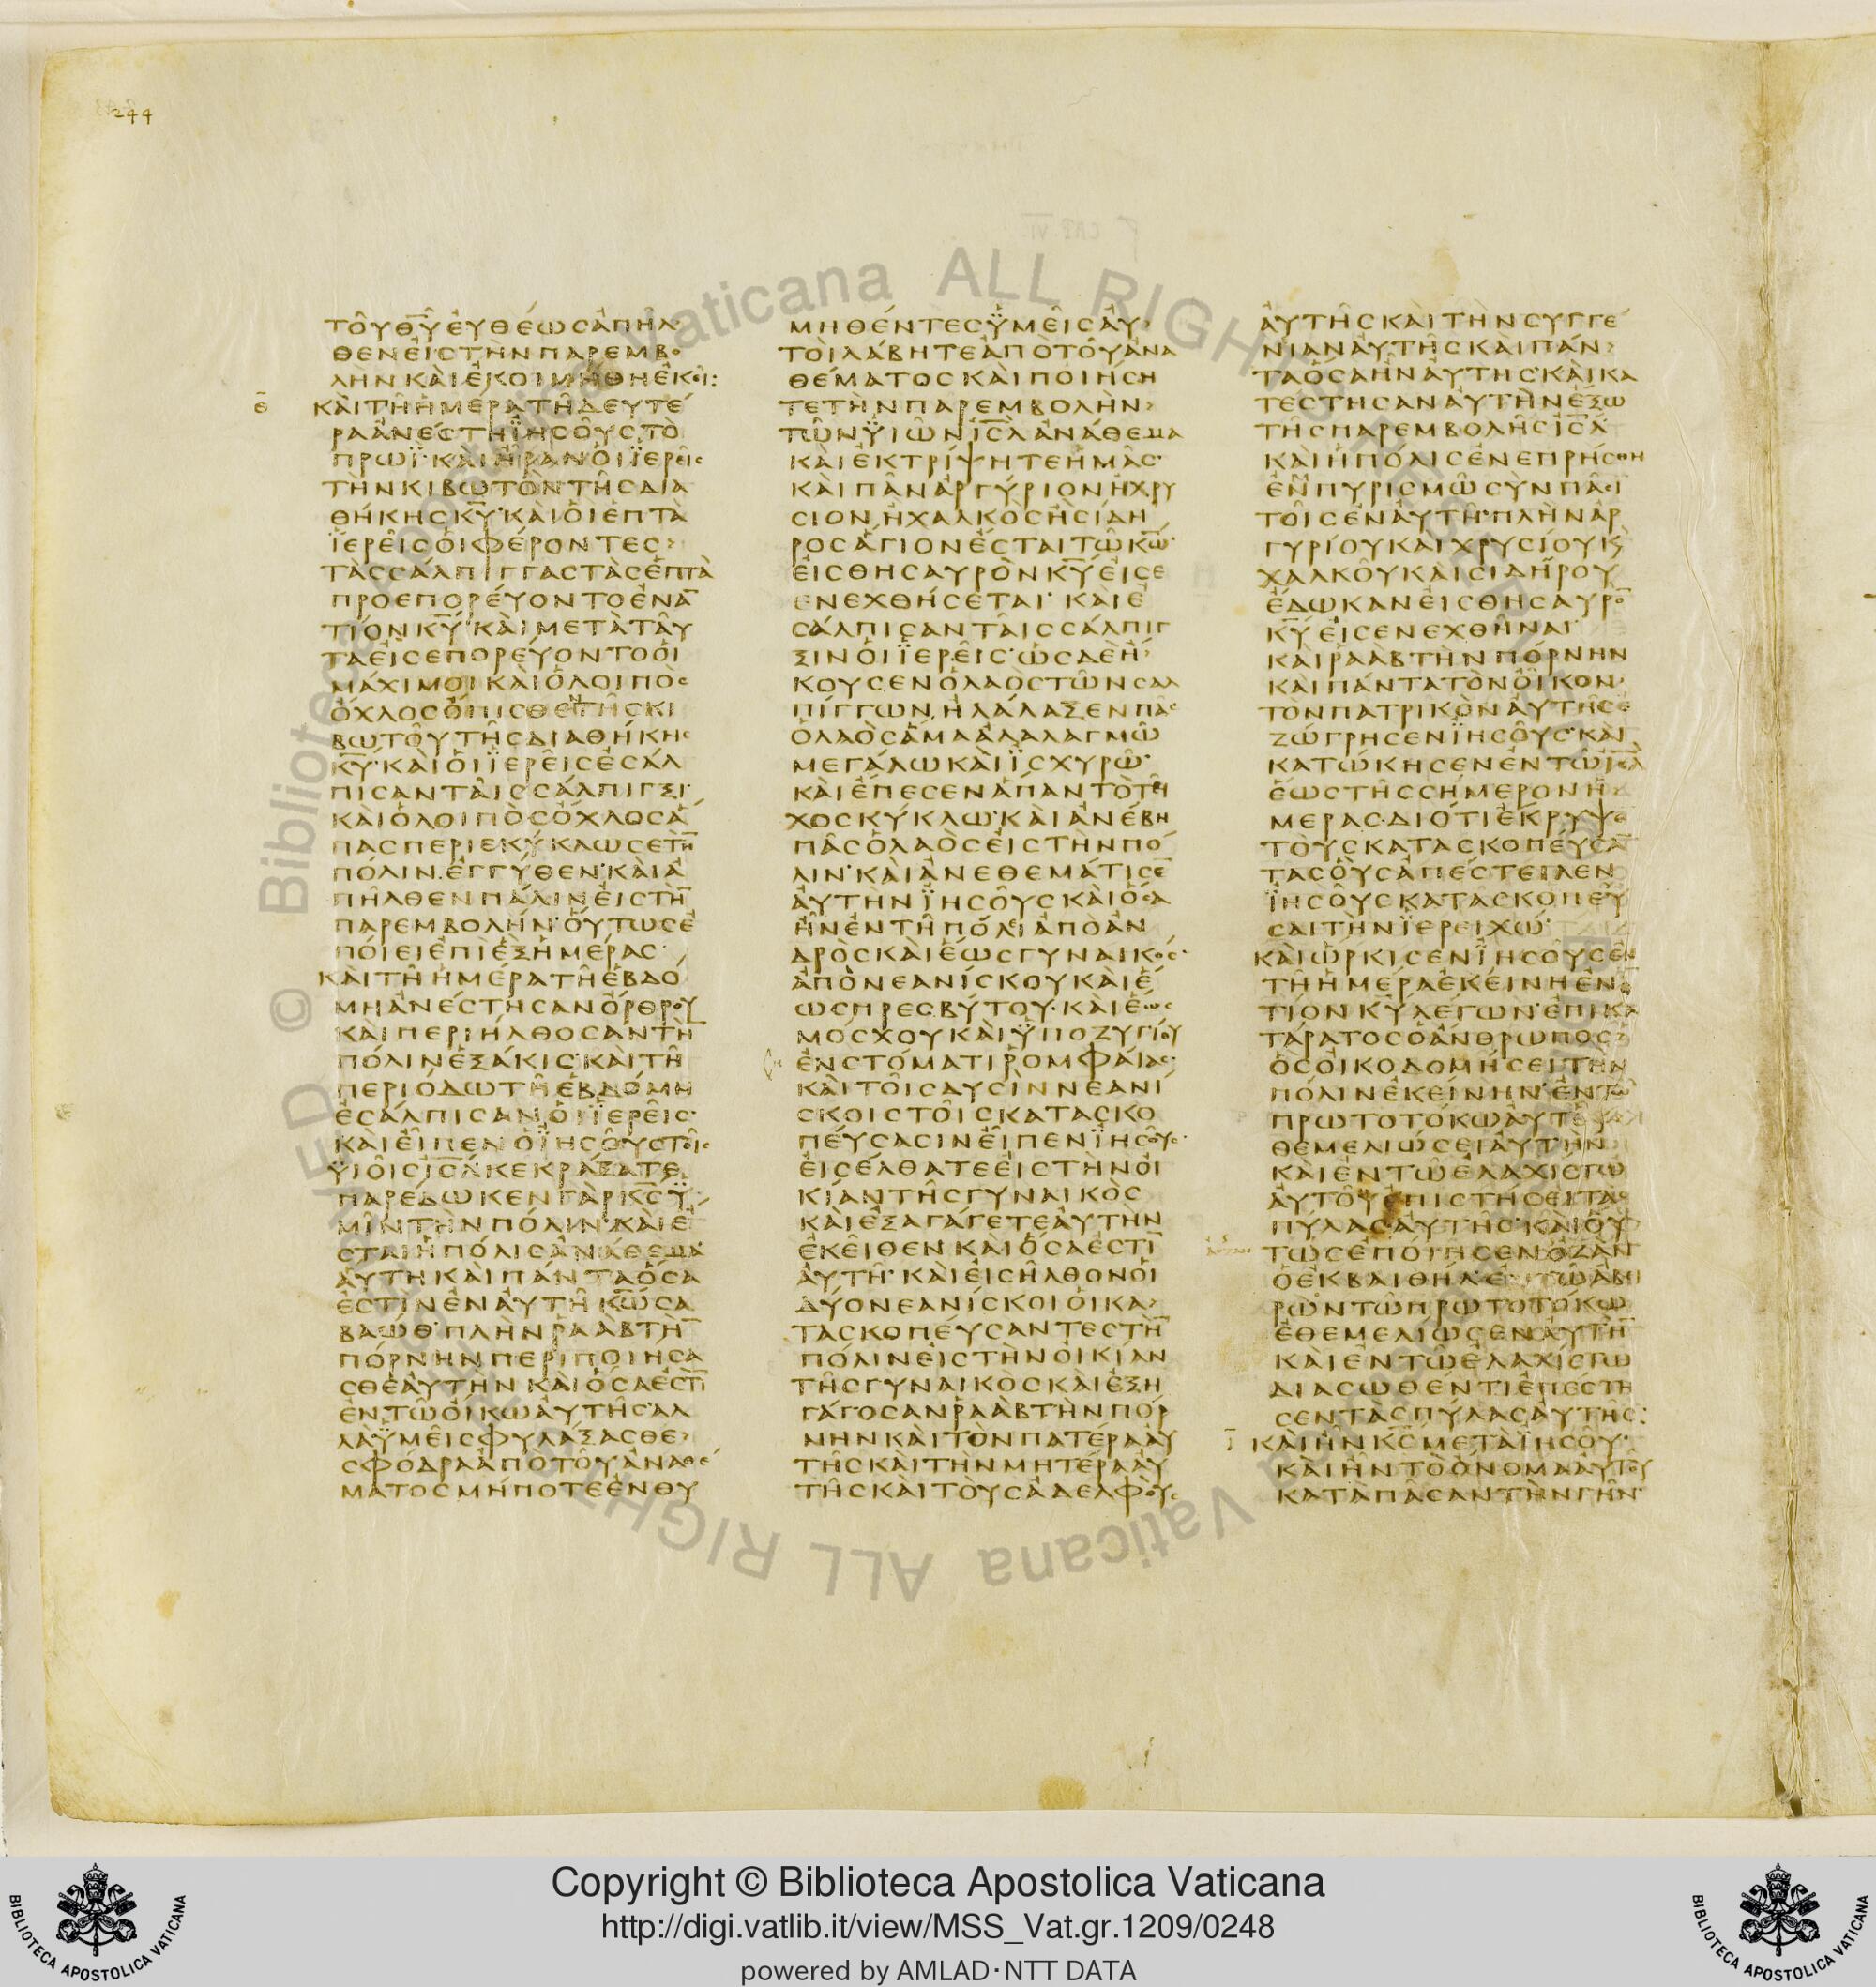 244
ΤΟΥ ΘΥ ΕΥΘΕΩΣ ΑΠΗΛ
ΘΕΝ ΕΙΣ ΤΗΝ ΠΑΡΕΜΒΟ
ΛΗΝ ΚΑΙ ΕΚΟΙΜΗΘΗ ΕΚΕΙ:
ΚΑΙ ΤΗ ΗΜΕΡΑ ΤΗ ΔΕΥΤΕ
ΡΑ ΑΝΕΣΤΗ ΪΗΣΟΥΣ ΤΟ
ΠΡΩΪ· ΚΑΙ ΗΡΑΝ ΟΙ ΪΕΡΕΙΣ
ΤΗΝ ΚΙΒΩΤΟΝ ΤΗΣ ΔΙΑ
ΘΗΚΗΣ ΚΥ· ΚΑΙ ΟΙ ΕΠΤΑ
ΪΕΡΕΙΣ ΟΙ ΦΕΡΟΝΤΕΣ
ΤΑΣ ΣΑΛΠΙΓΓΑΣ ΤΑΣ ΕΠΤΑ
ΠΡΟΕΠΟΡΕΥΟΝΤΟ ΕΝΑ̅
ΤΙΟΝ ΚΥ· ΚΑΙ ΜΕΤΑ ΤΑΥ
ΤΑ ΕΙΣΕΠΟΡΕΥΟΝΤΟ ΟΙ
ΜΑΧΙΜΟΙ ΚΑΙ Ο ΛΟΙΠΟΣ
ΟΧΛΟΣ ΟΠΙΣΘΕΝ ΤΗΣ ΚΙ
ΒΩΤΟΥ ΤΗΣ ΔΙΑΘΗΚΗΣ
ΚΥ· ΚΑΙ ΟΙ ΪΕΡΕΙΣ ΕΣΑΛ
ΠΙΣΑΝ ΤΑΙΣ ΣΑΛΠΙΓΞΙ·
ΚΑΙ Ο ΛΟΙΠΟΣ ΟΧΛΟΣ Α
ΠΑΣ ΠΕΡΙΕΚΥΚΛΩΣΕ ΤΗ̅
ΠΟΛΙΝ ΕΓΓΥΘΕΝ· ΚΑΙ Α
ΠΗΛΘΕΝ ΠΑΛΙΝ ΕΙΣ ΤΗ̅
ΠΑΡΕΜΒΟΛΗΝ· ΟΥΤΩΣ Ε
ΠΟΙΕΙ ΕΠΙ ΕΞ ΗΜΕΡΑΣ·
ΚΑΙ ΤΗ ΗΜΕΡΑ ΤΗ ΕΒΔΟ
ΜΗ ΑΝΕΣΤΗΣΑΝ ΟΡΘΡΟΥ
ΚΑΙ ΠΕΡΙΗΛΘΟΣΑΝ ΤΗ̅
ΠΟΛΙΝ ΕΞΑΚΙΣ· ΚΑΙ ΤΗ
ΠΕΡΙΟΔΩ ΤΗ ΕΒΔΟΜΗ
ΕΣΑΛΠΙΣΑΝ ΟΙ ΪΕΡΕΙΣ·
ΚΑΙ ΕΙΠΕΝ Ο ΪΗΣΟΥΣ ΤΟΙΣ
ΫΙΟΙΣ ΙΣΛ ΚΕΚΡΑΞΑΤΕ
ΠΑΡΕΔΩΚΕΝ ΓΑΡ ΚΣ Ϋ
ΜΙΝ ΤΗΝ ΠΟΛΙΝ· ΚΑΙ Ε
ΣΤΑΙ Η ΠΟΛΙΣ ΑΝΑΘΕΜΑ
ΑΥΤΗ ΚΑΙ ΠΑΝΤΑ ΟΣΑ
ΕΣΤΙΝ ΕΝ ΑΥΤΗ ΚΩ ΣΑ
ΒΑΩΘ· ΠΛΗΝ ΡΑΑΒ ΤΗ̅
ΠΟΡΝΗΝ ΠΕΡΙΠΟΙΗΣΑ
ΣΘΕ ΑΥΤΗΝ ΚΑΙ ΟΣΑ ΕΣΤΙ̅
ΕΝ ΤΩ ΟΙΚΩ ΑΥΤΗΣ· ΑΛ
ΛΑ ΫΜΕΙΣ ΦΥΛΑΞΑΣΘΕ
ΣΦΟΔΡΑ ΑΠΟ ΤΟΥ ΑΝΑΘΕ
ΜΑΤΟΣ ΜΗΠΟΤΕ ΕΝΘΥ
ΜΗΘΕΝΤΕΣ ΫΜΕΙΣ ΑΥ
ΤΟΙ ΛΑΒΗΤΕ ΑΠΟ ΤΟΥ ΑΝΑ
ΘΕΜΑΤΟΣ ΚΑΙ ΠΟΙΗΣΗ
ΤΕ ΤΗΝ ΠΑΡΕΜΒΟΛΗΝ
ΤΩΝ ΫΙΩΝ ΙΣΛ ΑΝΑΘΕΜΑ
ΚΑΙ ΕΚΤΡΙΨΗΤΕ ΗΜΑΣ·
ΚΑΙ ΠΑΝ ΑΡΓΥΡΙΟΝ Η ΧΡΥ
ΣΙΟΝ Η ΧΑΛΚΟΣ Η ΣΙΔΗ
ΡΟΣ ΑΓΙΟΝ ΕΣΤΑΙ ΤΩ ΚΩ·
ΕΙΣ ΘΗΣΑΥΡΟΝ ΚΥ ΕΙΣΕ
ΕΝΕΧΘΗΣΕΤΑΙ· ΚΑΙ Ε
ΣΑΛΠΙΣΑΝ ΤΑΙΣ ΣΑΛΠΙΓ
ΞΙΝ ΟΙ ΪΕΡΕΙΣ· ΩΣ ΔΕ Η
ΚΟΥΣΕΝ Ο ΛΑΟΣ ΤΩΝ ΣΑΛ
ΠΙΓΓΩΝ, ΗΛΑΛΑΞΕΝ ΠΑΣ
Ο ΛΑΟΣ ΑΜΑ ΑΛΑΛΑΓΜΩ
ΜΕΓΑΛΩ ΚΑΙ ΪΣΧΥΡΩ·
ΚΑΙ ΕΠΕΣΕΝ ΑΠΑΝ ΤΟ ΤΕΙ
ΧΟΣ ΚΥΚΛΩ· ΚΑΙ ΑΝΕΒΗ
ΠΑΣ Ο ΛΑΟΣ ΕΙΣ ΤΗΝ ΠΟ
ΛΙΝ· ΚΑΙ ΑΝΕΘΕΜΑΤΙΣΕ̅
ΑΥΤΗΝ ΪΗΣΟΥΣ ΚΑΙ ΟΣΑ
ΗΝ ΕΝ ΤΗ ΠΟΛΕΙ ΑΠΟ ΑΝ
ΔΡΟΣ ΚΑΙ ΕΩΣ ΓΥΝΑΙΚΟΣ·
ΑΠΟ ΝΕΑΝΙΣΚΟΥ ΚΑΙ Ε
ΩΣ ΠΡΕΣΒΥΤΟΥ· ΚΑΙ ΕΩΣ
ΜΟΣΧΟΥ ΚΑΙ ΫΠΟΖΥΓΙΟΥ
ΕΝ ΣΤΟΜΑΤΙ ΡΟΜΦΑΙΑΣ·
ΚΑΙ ΤΟΙΣ ΔΥΣΙΝ ΝΕΑΝΙ
ΣΚΟΙΣ ΤΟΙΣ ΚΑΤΑΣΚΟ
ΠΕΥΣΑΣΙΝ ΕΙΠΕΝ ΪΗΣΟΥΣ·
ΕΙΣΕΛΘΑΤΕ ΕΙΣ ΤΗΝ ΟΙ
ΚΙΑΝ ΤΗΣ ΓΥΝΑΙΚΟΣ
ΚΑΙ ΕΞΑΓΑΓΕΤΕ ΑΥΤΗΝ
ΕΚΕΙΘΕΝ ΚΑΙ ΟΣΑ ΕΣΤΙ̅
ΑΥΤΗ· ΚΑΙ ΕΙΣΗΛΘΟΝ ΟΙ
ΔΥΟ ΝΕΑΝΙΣΚΟΙ ΟΙ ΚΑ
ΤΑΣΚΟΠΕΥΣΑΝΤΕΣ ΤΗ̅
ΠΟΛΙΝ ΕΙΣ ΤΗΝ ΟΙΚΙΑΝ
ΤΗΣ ΓΥΝΑΙΚΟΣ ΚΑΙ ΕΞΗ
ΓΑΓΟΣΑΝ ΡΑΑΒ ΤΗΝ ΠΟΡ
ΝΗΝ ΚΑΙ ΤΟΝ ΠΑΤΕΡΑ ΑΥ
ΤΗΣ ΚΑΙ ΤΗΝ ΜΗΤΕΡΑ ΑΥ
ΤΗΣ ΚΑΙ ΤΟΥΣ ΑΔΕΛΦΟΥΣ
ΑΥΤΗΣ ΚΑΙ ΤΗΝ ΣΥΓΓΕ
ΝΙΑΝ ΑΥΤΗΣ ΚΑΙ ΠΑΝ
ΤΑ ΟΣΑ ΗΝ ΑΥΤΗΣ· ΚΑΙ ΚΑ
ΤΕΣΤΗΣΑΝ ΑΥΤΗΝ ΕΞΩ
ΤΗΣ ΠΑΡΕΜΒΟΛΗΣ ΙΣΛ
ΚΑΙ Η ΠΟΛΙΣ ΕΝΕΠΡΗΣΘΗ
ΕΝ ΠΥΡΙΣΜΩ ΣΥΝ ΠΑΣΙ
ΤΟΙΣ ΕΝ ΑΥΤΗ· ΠΛΗΝ ΑΡ
ΓΥΡΙΟΥ ΚΑΙ ΧΡΥΣΙΟΥ Κ
ΧΑΛΚΟΥ ΚΑΙ ΣΙΔΗΡΟΥ
ΕΔΩΚΑΝ ΕΙΣ ΘΗΣΑΥΡΟ̅
ΚΥ ΕΙΣΕΝΕΧΘΗΝΑΙ·
ΚΑΙ ΡΑΑΒ ΤΗΝ ΠΟΡΝΗΝ
ΚΑΙ ΠΑΝΤΑ ΤΟΝ ΟΙΚΟΝ
ΤΟΝ ΠΑΤΡΙΚΟΝ ΑΥΤΗΣ Ε
ΖΩΓΡΗΣΕΝ ΪΗΣΟΥΣ· ΚΑΙ
ΚΑΤΩΚΗΣΕΝ ΕΝ ΤΩ ΙΣΛ
ΕΩΣ ΤΗΣ ΣΗΜΕΡΟΝ Η
ΜΕΡΑΣ· ΔΙΟΤΙ ΕΚΡΥΨΕ̅
ΤΟΥΣ ΚΑΤΑΣΚΟΠΕΥΣΑ̅
ΤΑΣ ΟΥΣ ΑΠΕΣΤΕΙΛΕΝ
ΪΗΣΟΥΣ ΚΑΤΑΣΚΟΠΕΥ
ΣΑΙ ΤΗΝ ΪΕΡΕΙΧΩ·
ΚΑΙ ΩΡΚΙΣΕΝ ΪΗΣΟΥΣ ΕΝ
ΤΗ ΗΜΕΡΑ ΕΚΕΙΝΗ ΕΝΑ̅
ΤΙΟΝ ΚΥ ΛΕΓΩΝ· ΕΠΙΚΑ
ΤΑΡΑΤΟΣ Ο ΑΝΘΡΩΠΟΣ
ΟΣ ΟΙΚΟΔΟΜΗΣΕΙ ΤΗΝ
ΠΟΛΙΝ ΕΚΕΙΝΗΝ· ΕΝ ΤΩ
ΠΡΩΤΟΤΟΚΩ ΑΥΤΟΥ
ΘΕΜΕΛΙΩΣΕΙ ΑΥΤΗΝ
ΚΑΙ ΕΝ ΤΩ ΕΛΑΧΙΣΤΩ
ΑΥΤΟΥ ΕΠΙΣΤΗΣΕΙ ΤΑΣ
ΠΥΛΑΣ ΑΥΤΗΣ· ΚΑΙ ΟΥ
ΤΩΣ ΕΠΟΙΗΣΕΝ ΟΖΑΝ
Ο ΕΚ ΒΑΙΘΗΛ ΕΝ ΤΩ ΑΒΙ
ΡΩΝ ΤΩ ΠΡΩΤΟΤΟΚΩ
ΕΘΕΜΕΛΙΩΣΕΝ ΑΥΤΗ̅
ΚΑΙ ΕΝ ΤΩ ΕΛΑΧΙΣΤΩ
ΔΙΑΣΩΘΕΝΤΙ ΕΠΕΣΤΗ
ΣΕΝ ΤΑΣ ΠΥΛΑΣ ΑΥΤΗΣ:
ΚΑΙ ΗΝ ΚΣ ΜΕΤΑ ΪΗΣΟΥ·
ΚΑΙ ΗΝ ΤΟ ΟΝΟΜΑ ΑΥΤΟΥ
ΚΑΤΑ ΠΑΣΑΝ ΤΗΝ ΓΗΝ·
Copyright © Biblioteca Apostolica Vaticana
http://digi.vatlib.it/view/MSS_Vat.gr.1209/0248
powered by AMLAD·NTT DATA
BIBLIOTECA APOSTOLICA VATICANA
BIBLIOTECA APOSTOLICA VATICANA